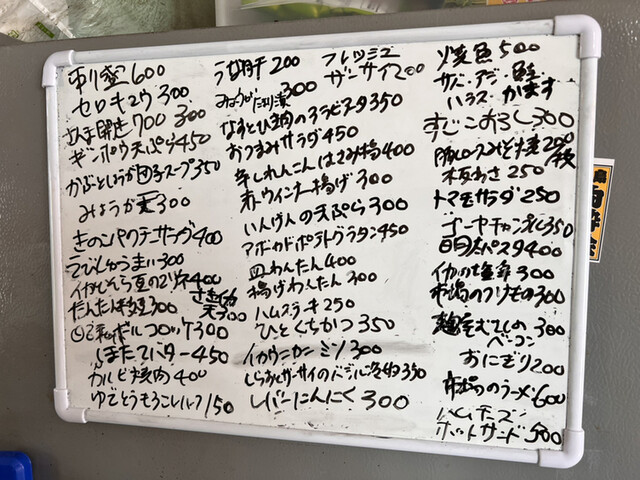 刺盛600
セロキュウ300
さんま開き700 300
ギンポウ天ぷら450
かぶとしょうが団子スープ350
みょうが天300
きのこパクチーサラダ400
えびしゅうまい300
イカとそら豆のマリネ400
さきイカ天300
たんたん春雨300
ボルコロッケ300
ほたてバター450
カルビ焼肉400
ゆでとうもろこし150
うな肝干200
みょうが甘酢漬300
なすとひき肉の350
おつまみサラダ450
辛しれんこんはさみ揚400
赤ウインナー揚げ300
いんげんの天ぷら300
アボカドポテトグラタン450
皿わんたん400
揚げわんたん300
ハムステーキ250
ひとくちかつ350
イカウニカニミソ300
しらすとザーサイのバジル冷奴350
レバーにんにく300
フレッシュ
ザーサイ200
焼魚500
サバ・アジ・鮭
ハラス・かます
すじこおろし300
豚ロースみそ焼200/枚
板わさ250
トマトサラダ250
ゴーヤチャンプル350
明太パスタ400
イカの塩辛300
市場のつけもの300
300
ベーコン
おにぎり200
市場のラーメン600
ハムチーズ
ホットサンド500